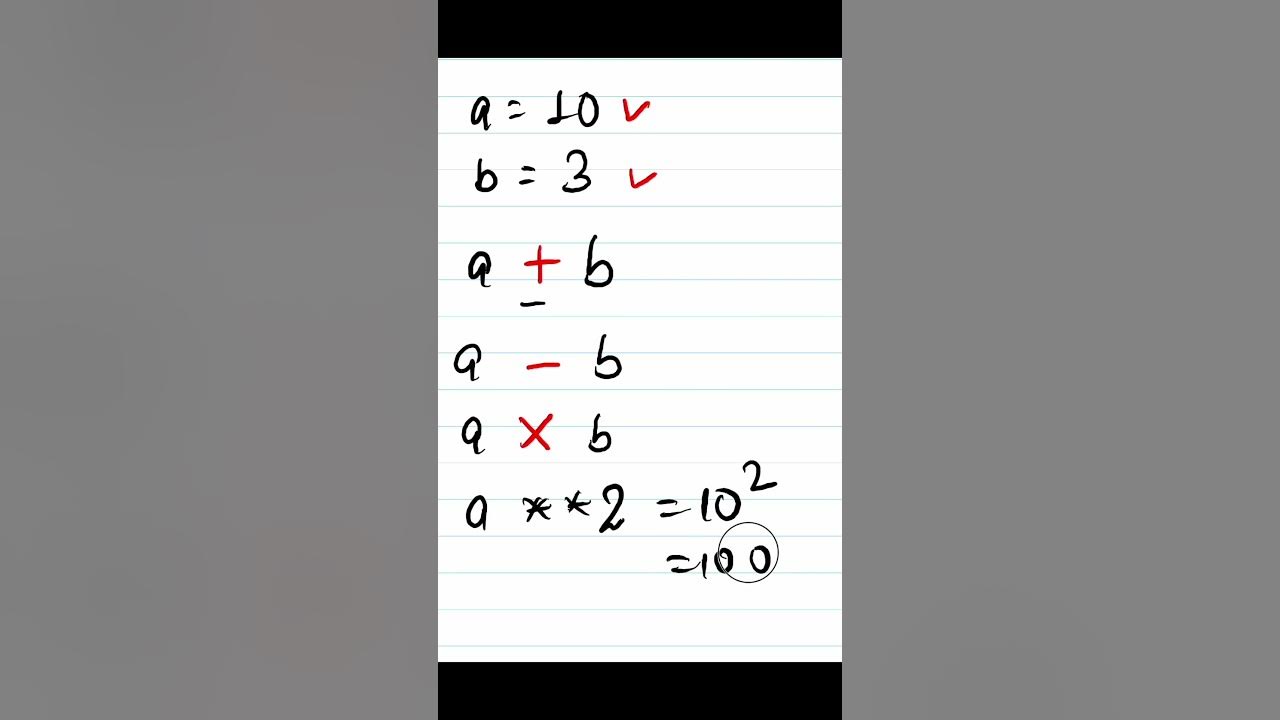 a = 10 ✓
b = 3 ✓
a + b
a - b
a × b
a **2 = 10²
= 100